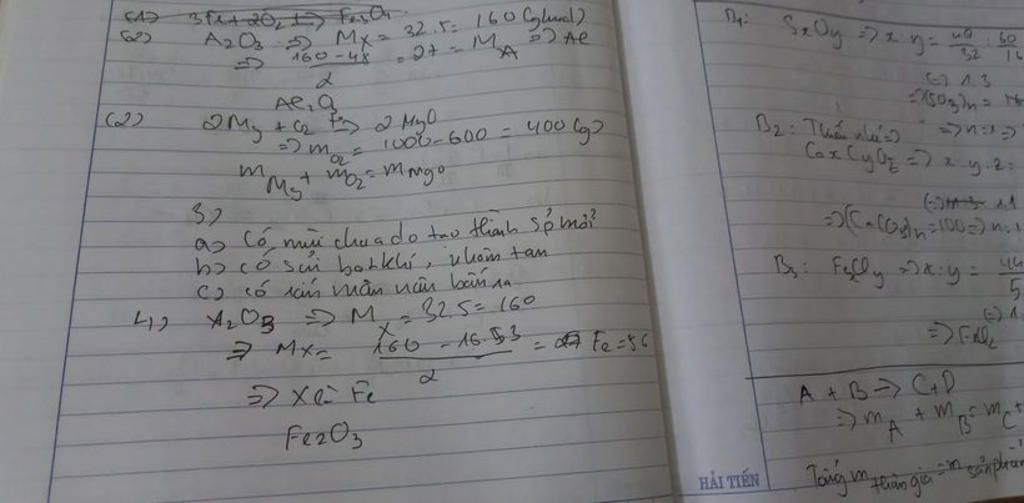 C1) 3Fe + 2O2 => Fe3O4
C2) A2O3 => MX = 32.5 = 160 (g/mol)
=> 160 - 48 / 2 = 27 = MA => Al
Al2O3
C2) 2Mg + O2 => 2MgO
=> mO2 = 1000 - 600 = 400 (g)
mMg + mO2 = mMgO
3)
a) Có mùi chua do tạo thành sp mới
b) có sủi bọt khí, tan
c) có màu nâu
4) X2O3 => MX = 32.5 = 160
=> MX = 160 - 16.3 / 2 = Fe = 56
=> X là Fe
Fe2O3
B1: SxOy => x:y = 40/32 : 60/16
(=) 1:3
=> (SO3)n =
=> n = 1 =>
B2:
CaxCyOz => x:y:z =
(=) 1:1
=> (CaCO3)n = 100 => n = 1
B3: FexCly => x:y = 44
5
(=) 1:
=>
A + B => C + D
=> mA + mB = mC +
Tổng m tham gia = m sản phẩm
HẢI TIẾN